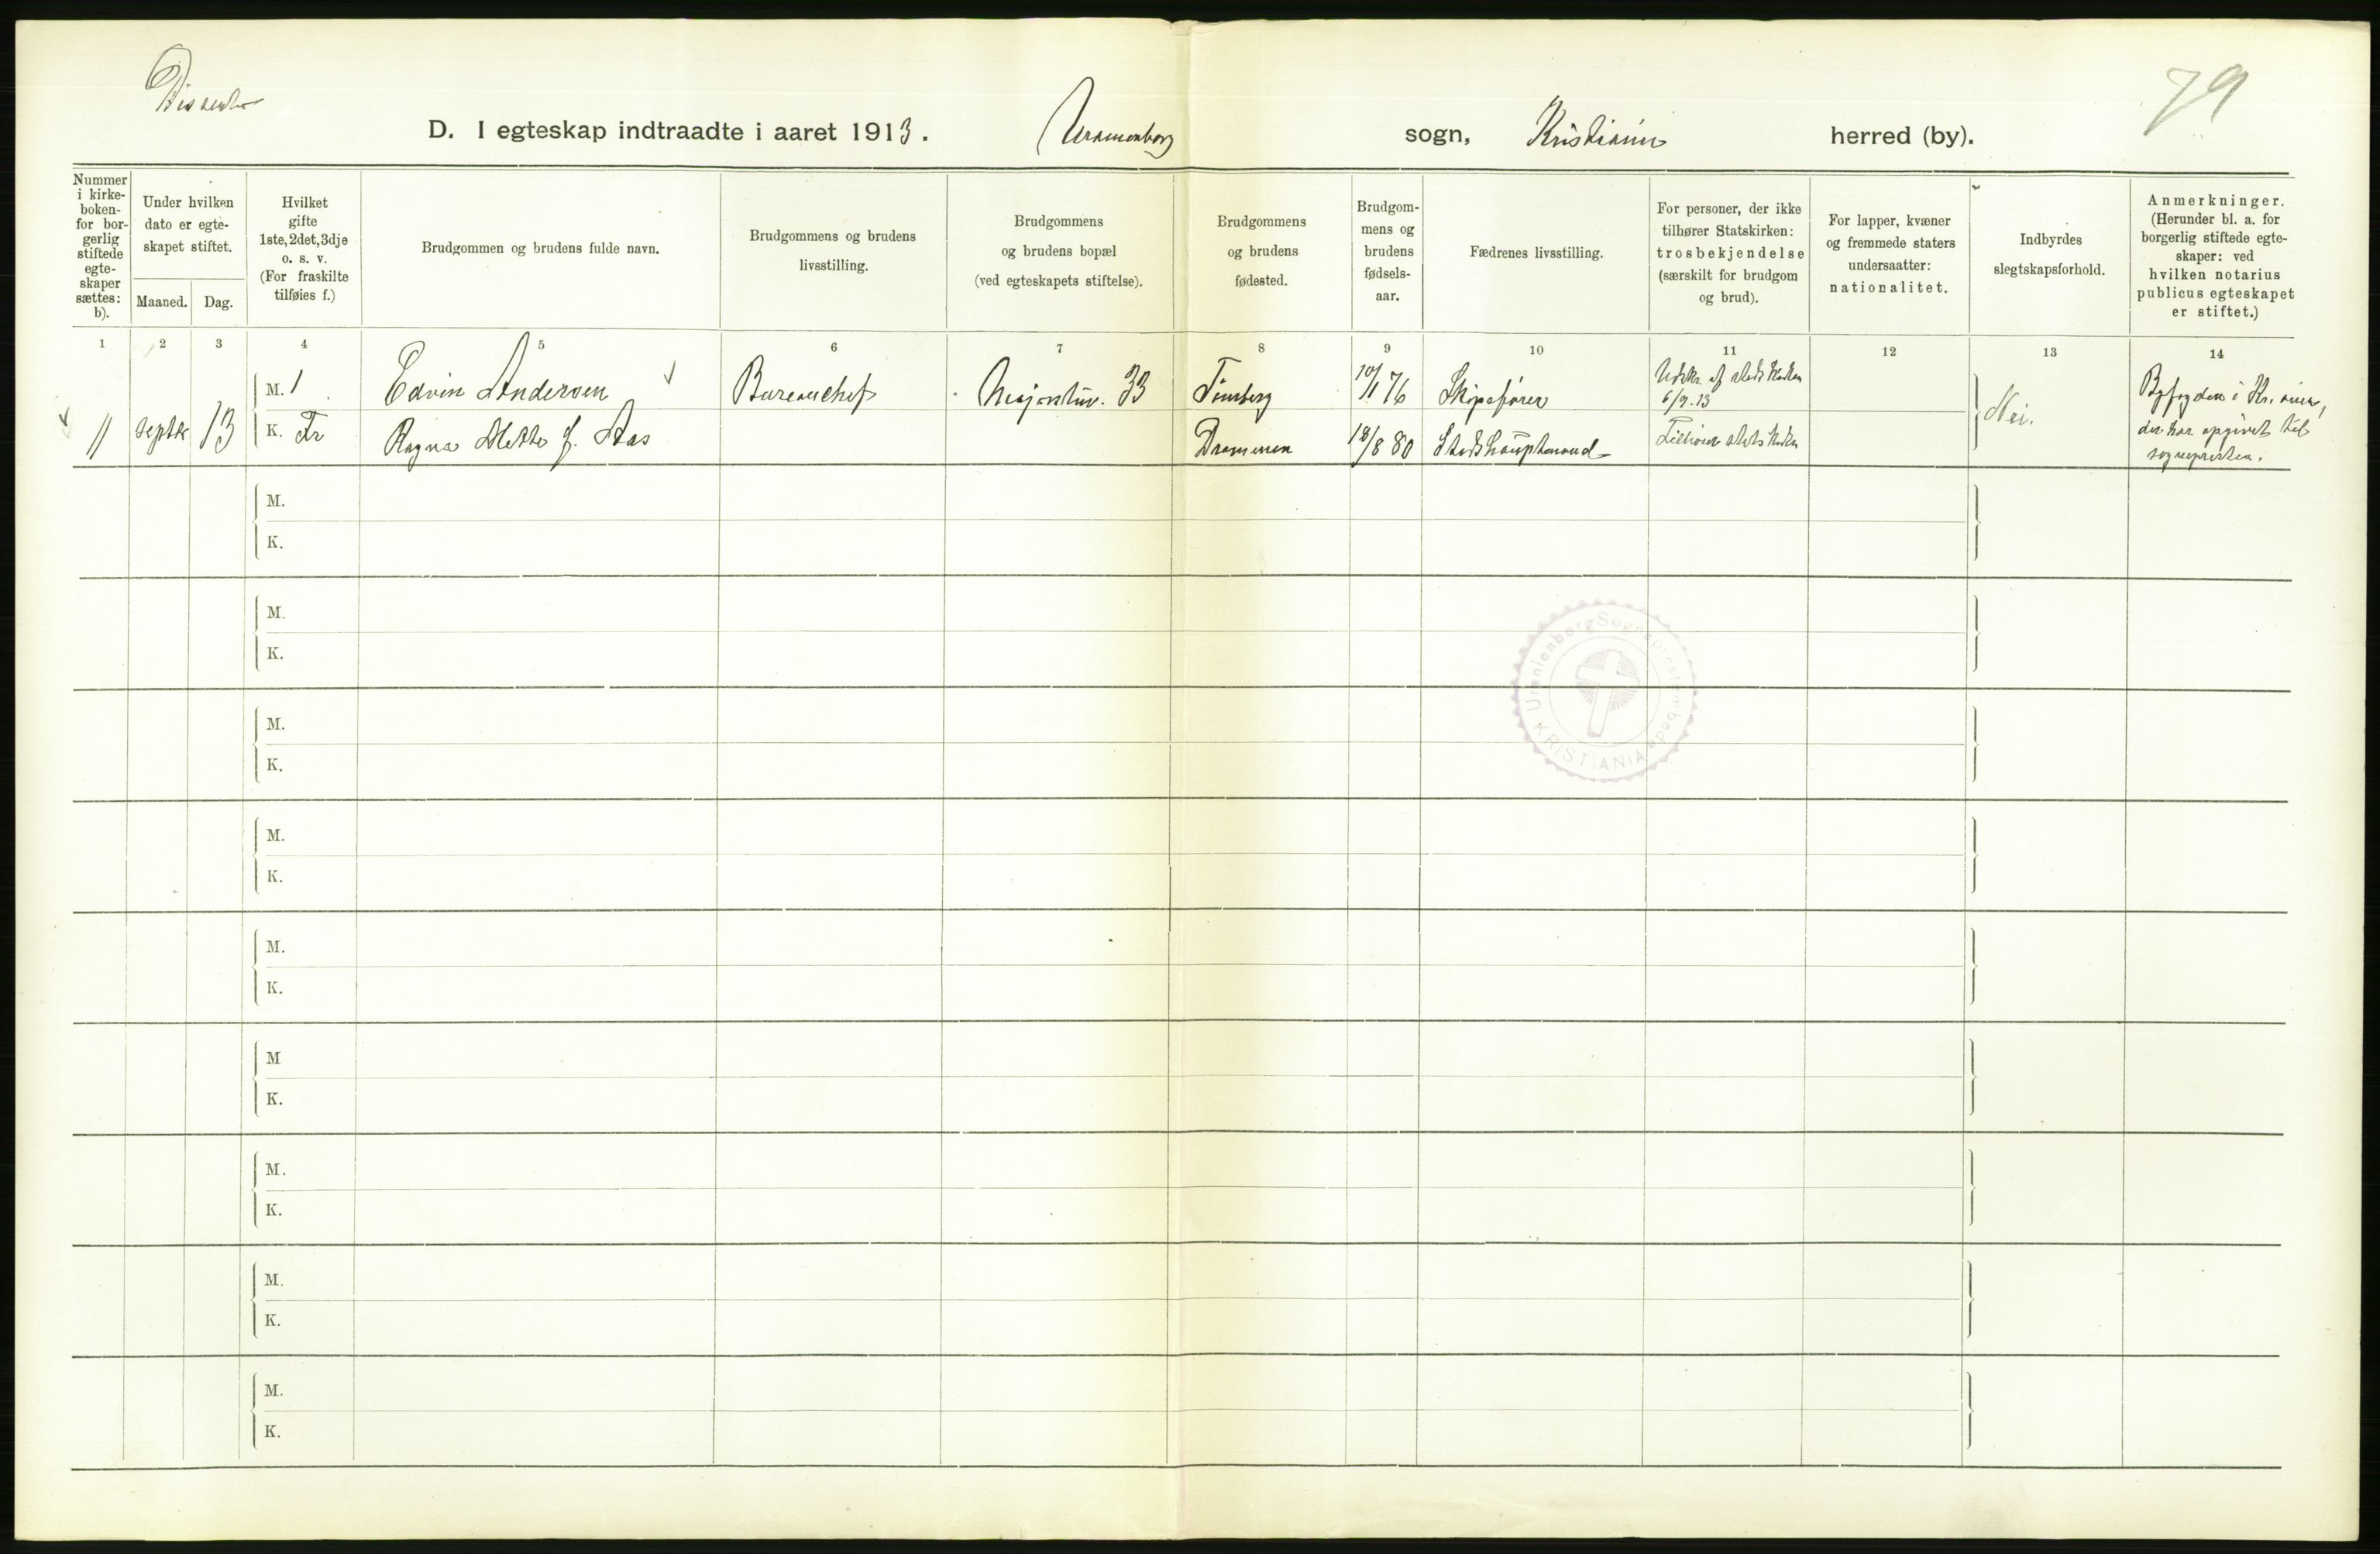 Dissenter
79
D. I egteskap indtraadte i aaret 1913. Uranienborg sogn, Kristiania herred (by).
Nummer
i kirke-
boken-
for bor-
gerlig
stiftede
egte-
skaper
sættes:
b).
Under hvilken
dato er egte-
skapet stiftet.
Maaned. Dag.
Hvilket
gifte
1ste, 2det, 3dje
o. s. v.
(For fraskilte
tilføies f.)
Brudgommen og brudens fulde navn.
Brudgommens og brudens
livsstilling.
Brudgommens
og brudens bopæl
(ved egteskapets stiftelse).
Brudgommens
og brudens
fødested.
Brudgom-
mens og
brudens
fødsels-
aar.
Fædrenes livsstilling.
For personer, der ikke
tilhører Statskirken:
trosbekjendelse
(særskilt for brudgom
og brud).
For lapper, kvæner
og fremmede staters
undersaatter:
nationalitet.
Indbyrdes
slegtskapsforhold.
Anmerkninger.
(Herunder bl. a. for
borgerlig stiftede egte-
skaper: ved
hvilken notarius
publicus egteskapet
er stiftet.)
1 2 3 4 5 6 7 8 9 10 11 12 13 14
M. 1 Edvin Andersen Bureauchef Majorstuv. 33 Tønsberg 10/1 76 Skipsfører Udskr. af statskirken
6/9.13
11 Septbr 13 K. Fr Ragna Mette f. Aas Drammen 18/8 80 Stadshauptmand Tilhører statskirken Nei.
Byfogden i Kr.ania,
der har opgivet til
sognepresten.
M.
K.
M.
K.
M.
K.
M.
K.
M.
K.
M
K.
M.
K.
M.
K.
M.
K.
Uranienborg Sogneprestembede
KRISTIANIA